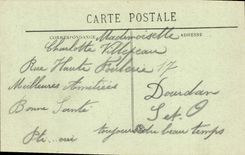 CARTE POSTALE
CORRESPONDANCE
ADRESSE
Mademoiselle
Charlotte Villejean
Rue Haute Foulerie 17
Meilleures Amitiées
Dourdan
Bonne Santé
S et O
toujours du beau temps